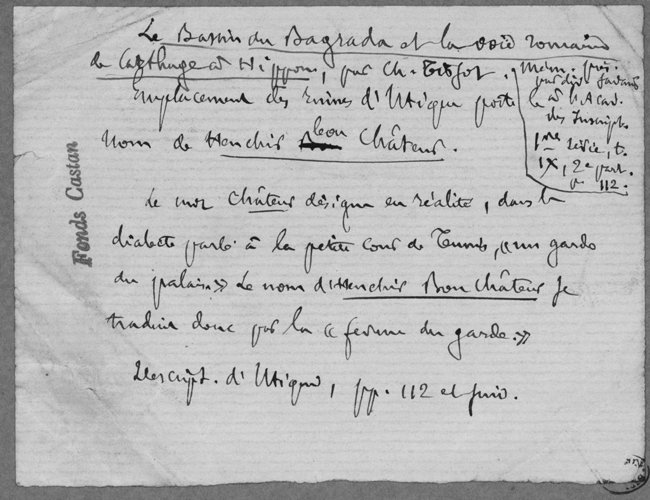 Le Bassin du Bagrada et la voie romaine
de Carthage à Hippone, par Ch. Tissot.
Mém. prés.
par div. savants
à l'Acad.
des Inscript.
1re série, t.
IX, 2e part.
p. 112.
Emplacement des ruines d'Utique porte le
nom de Henchir bou Châteur.
Le mot Châteur désigne en réalité, dans le
dialecte parlé à la petite cour de Tunis, « un garde
du palais » Le nom d'Henchir Bou Châteur se
traduit donc par la « ferme du garde. »
Descript. d'Utique, pp. 112 et suiv.
Fonds Castan